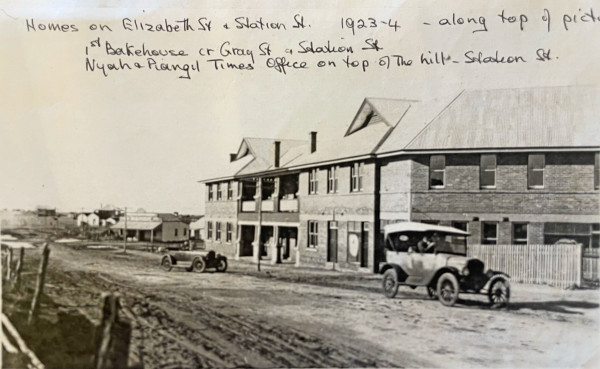 Homes on Elizabeth St & Station St. 1923-4 - along top of pict
1st Bakehouse cr Gray St & Station St
Nyah & Piangil Times Office on top of The hill - Station St.